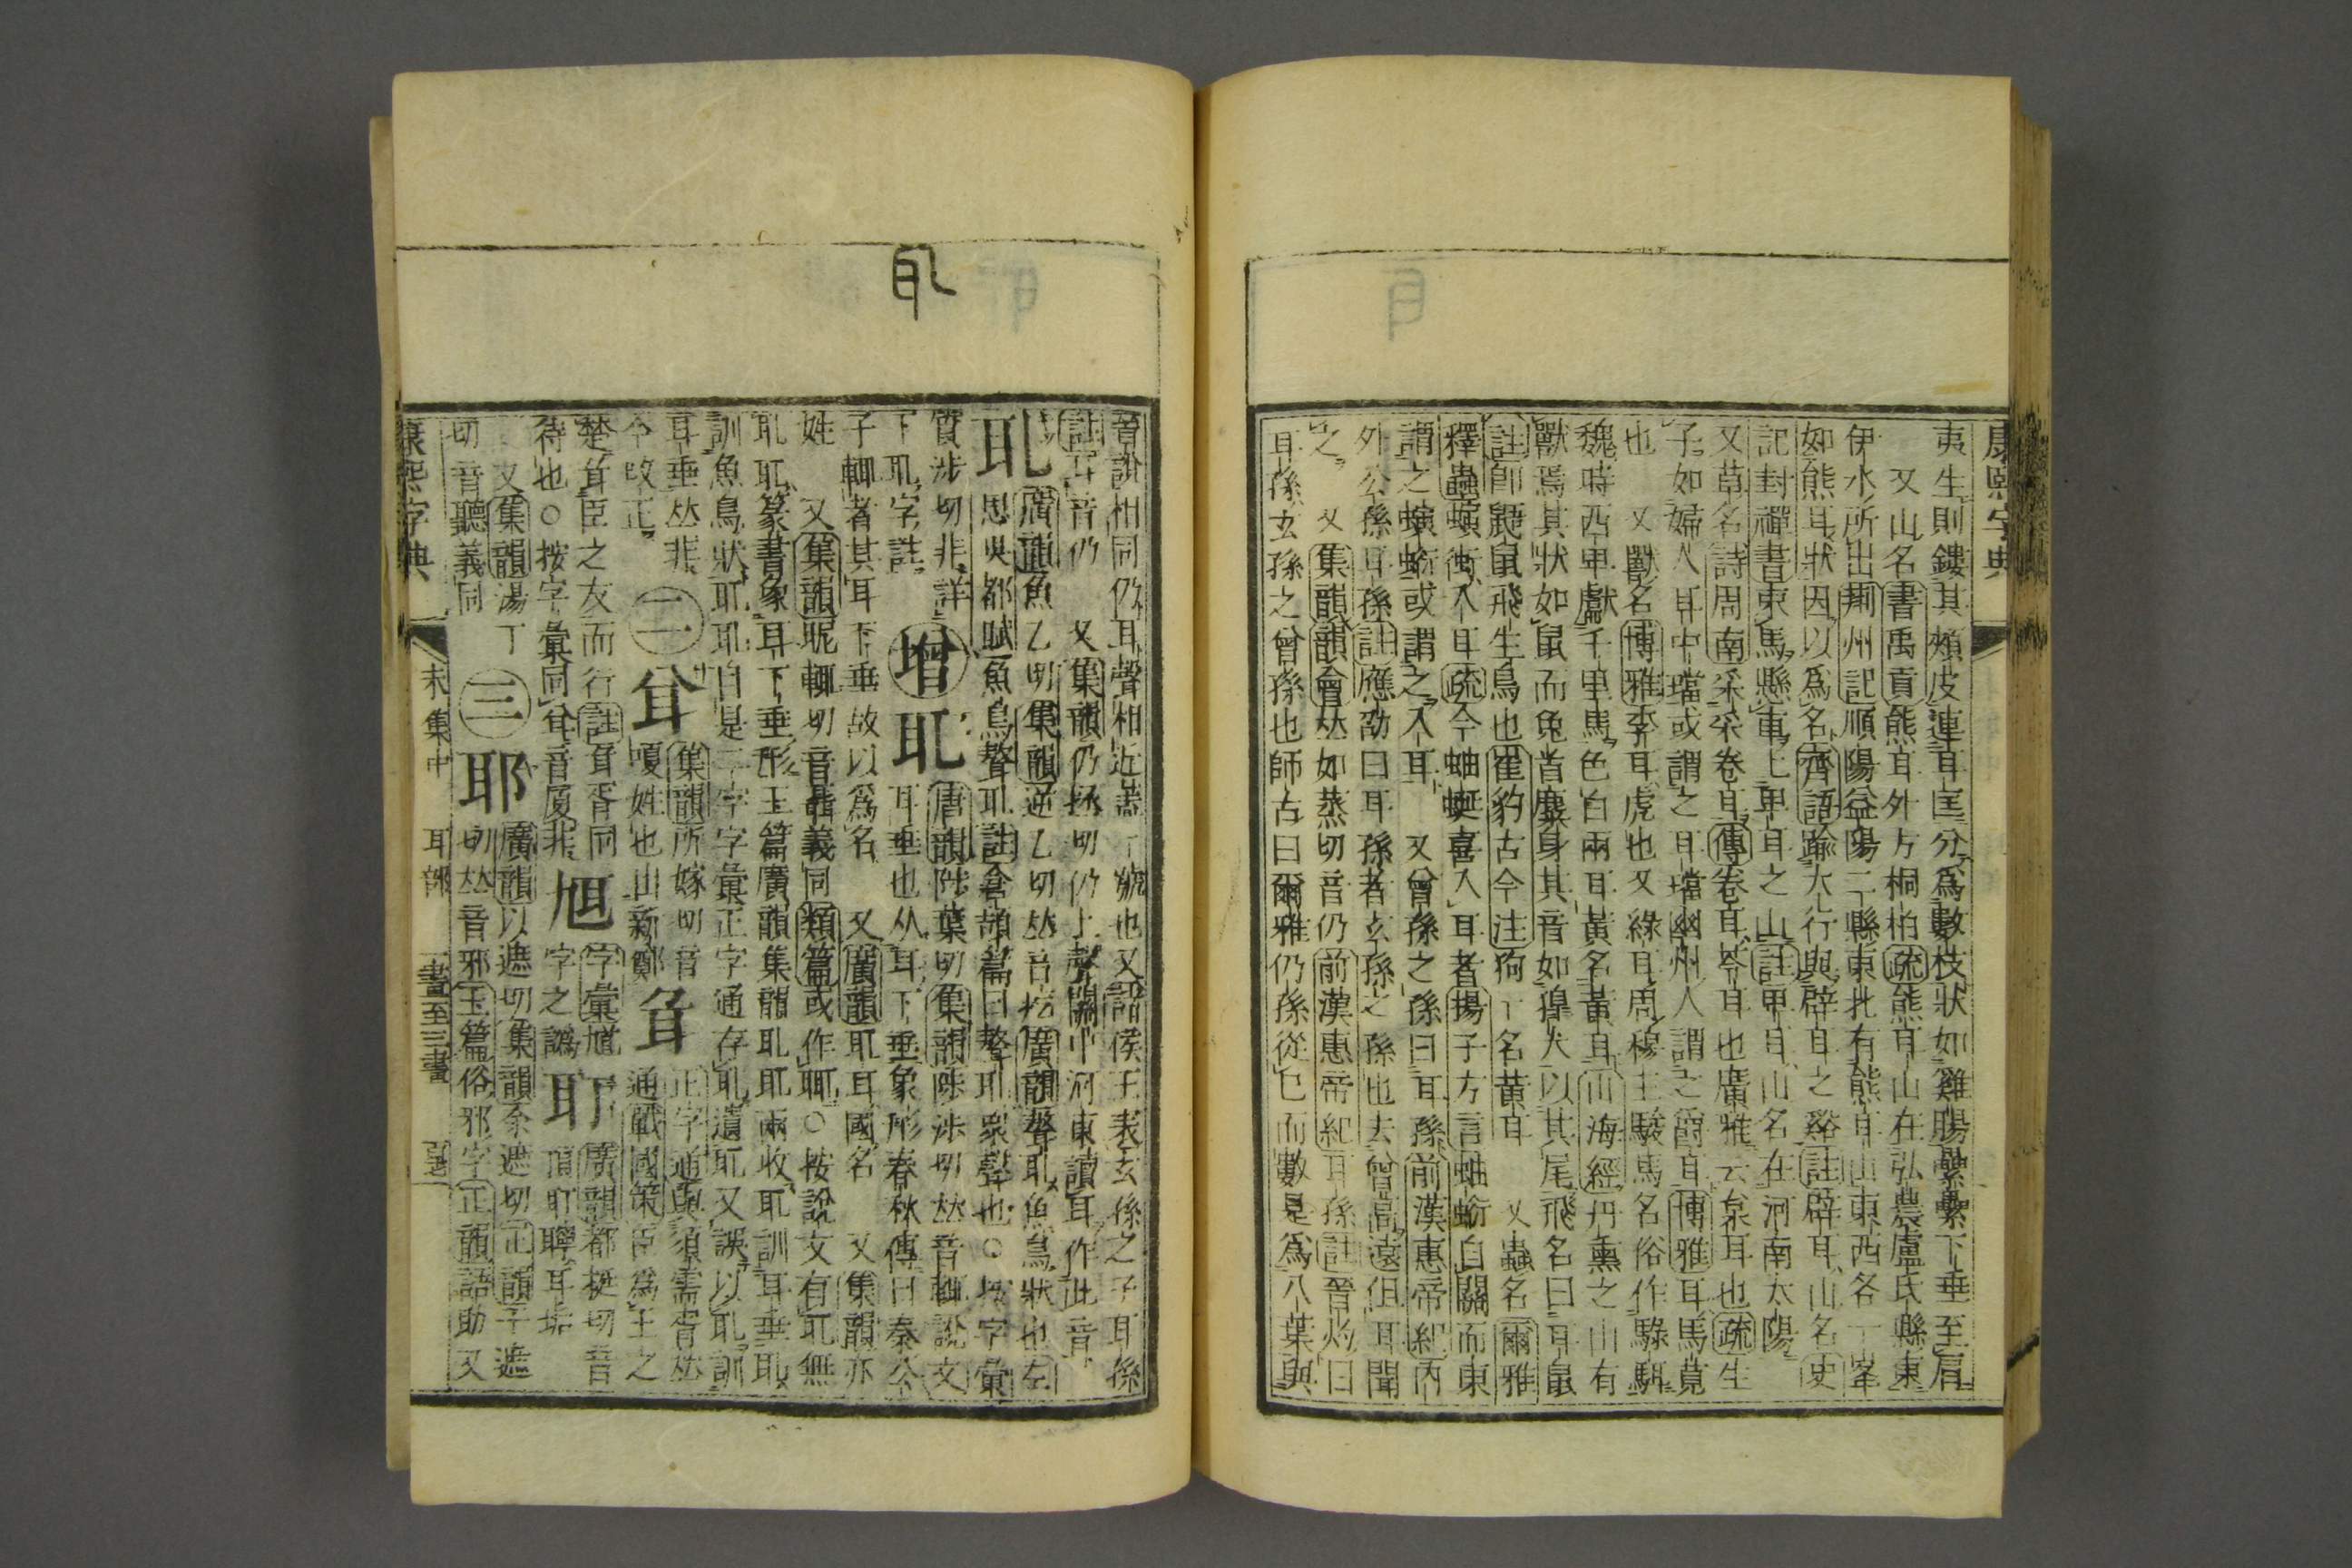 康熙字典
夷生則鏤其頰皮連耳匡分爲數枝狀如雞腸纍纍下垂至肩
又山名書禹貢熊耳外方桐柏疏熊耳山在弘農盧氏縣東
伊水所出荆州記順陽益陽二縣東北有熊耳山東西各一峯
如熊耳狀因以爲名齊語踰大行與辟耳之谿註辟耳山名史
記封禪書束馬懸車上卑耳之山註卑耳山名在河南太陽
又草名詩周南采采卷耳傳卷耳苓耳也廣雅云枲耳也疏生
子如婦人耳中璫或謂之耳璫幽州人謂之爵耳博雅耳馬莧
也 又獸名博雅李耳虎也又綠耳周穆王駿馬名俗作騄駬
魏時西卑獻千里馬色白兩耳黃名黃耳山海經丹熏之山有
獸焉其狀如鼠而兔首麋身其音如獋犬以其尾飛名曰耳鼠
註卽鼯鼠飛生鳥也崔豹古今注狗一名黃耳 又蟲名爾雅
釋蟲螾衝入耳疏今蚰蜒喜入耳者揚子方言蚰蜒自關而東
謂之螾蜒或謂之入耳 又曾孫之孫曰耳孫前漢惠帝紀內
外公孫耳孫註應劭曰耳孫者玄孫之孫也去曾高遠但耳聞
之 又集韻韻會𠀤如蒸切音仍前漢惠帝紀耳孫註晉灼曰
耳孫玄孫之曾孫也師古曰爾雅仍孫從己而數是爲八葉與
耴
晉說相同仍耳聲相近蓋一號也又諸侯王表玄孫之子耳孫
註耳音仍 又集韻仍拯切仍上聲關中河東讀耳作此音
耴 廣韻魚乙切集韻逆乙切𠀤音疙廣韻聱耴魚鳥狀也左
思吳都賦魚鳥聱耴註倉頡篇曰聱耴衆聲也○按字彙
質涉切非詳
下耴字註 增 耴 唐韻陟葉切集韻陟涉切𠀤音輒說文
耳垂也从耳下垂象形春秋傳曰秦公
子輒者其耳下垂故以爲名 又廣韻耴耳國名 又集韻亦
姓 又集韻昵輒切音聶義同類篇或作耴○按說文有耴無
耴耴篆書象耳下垂形玉篇廣韻集韻耴耴兩收耴訓耳垂耴
訓魚鳥狀耴耴自是二字字彙正字通存耴遺耴又誤以耴訓
耳垂𠀤非
今改正 二 耷 集韻所嫁切音
嗄姓也出新鄭 䎽 正字通與須需胥𠀤
通戰國策臣爲王之
楚䎽臣之友而行註䎽胥同
待也○按字彙同耷音廈非 䎳 字彙馗
字之譌 耵 廣韻都挺切音
頂耵聹耳垢
又集韻湯丁
切音聽義同 三 耶 廣韻以遮切集韻余遮切正韻于遮
切𠀤音邪玉篇俗邪字正韻語助又
康熙字典 未集中 耳部 一畫至三畫